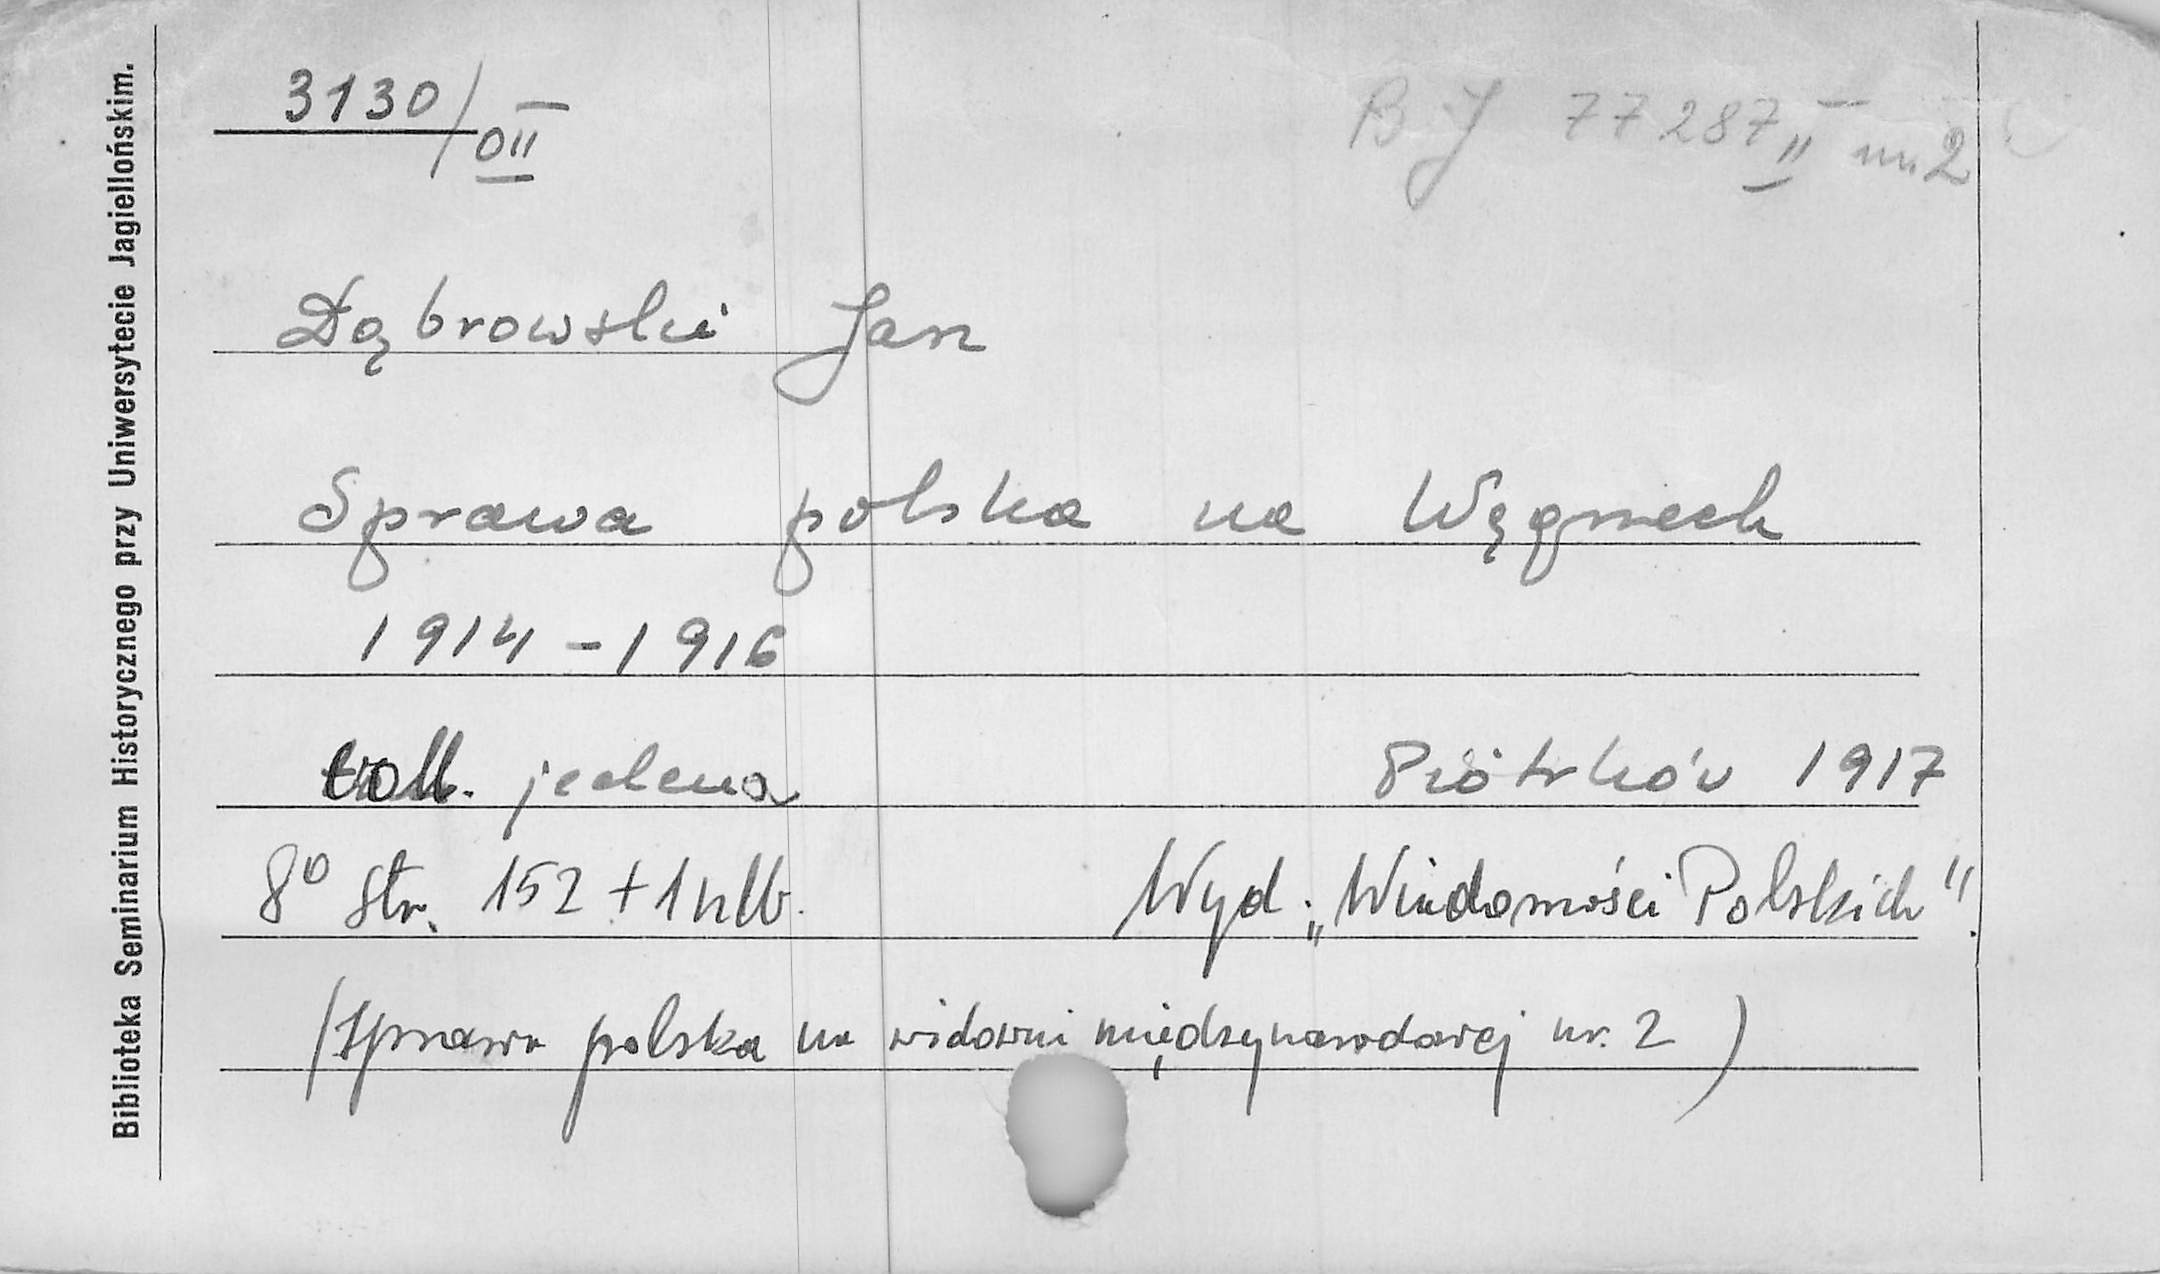 Biblioteka Seminarium Historycznego przy Uniwersytecie Jagiellońskim.
3130/OII
BJ 77287 II nr. 2
Dąbrowski Jan
Sprawa polska na Węgrzech
1914-1916
jedena Piótrków 1917
8° str. 152 + 1 nlb. Wyd. „Wiadomości Polskich".
(Sprawa polska na widowni międzynarodowej nr. 2)